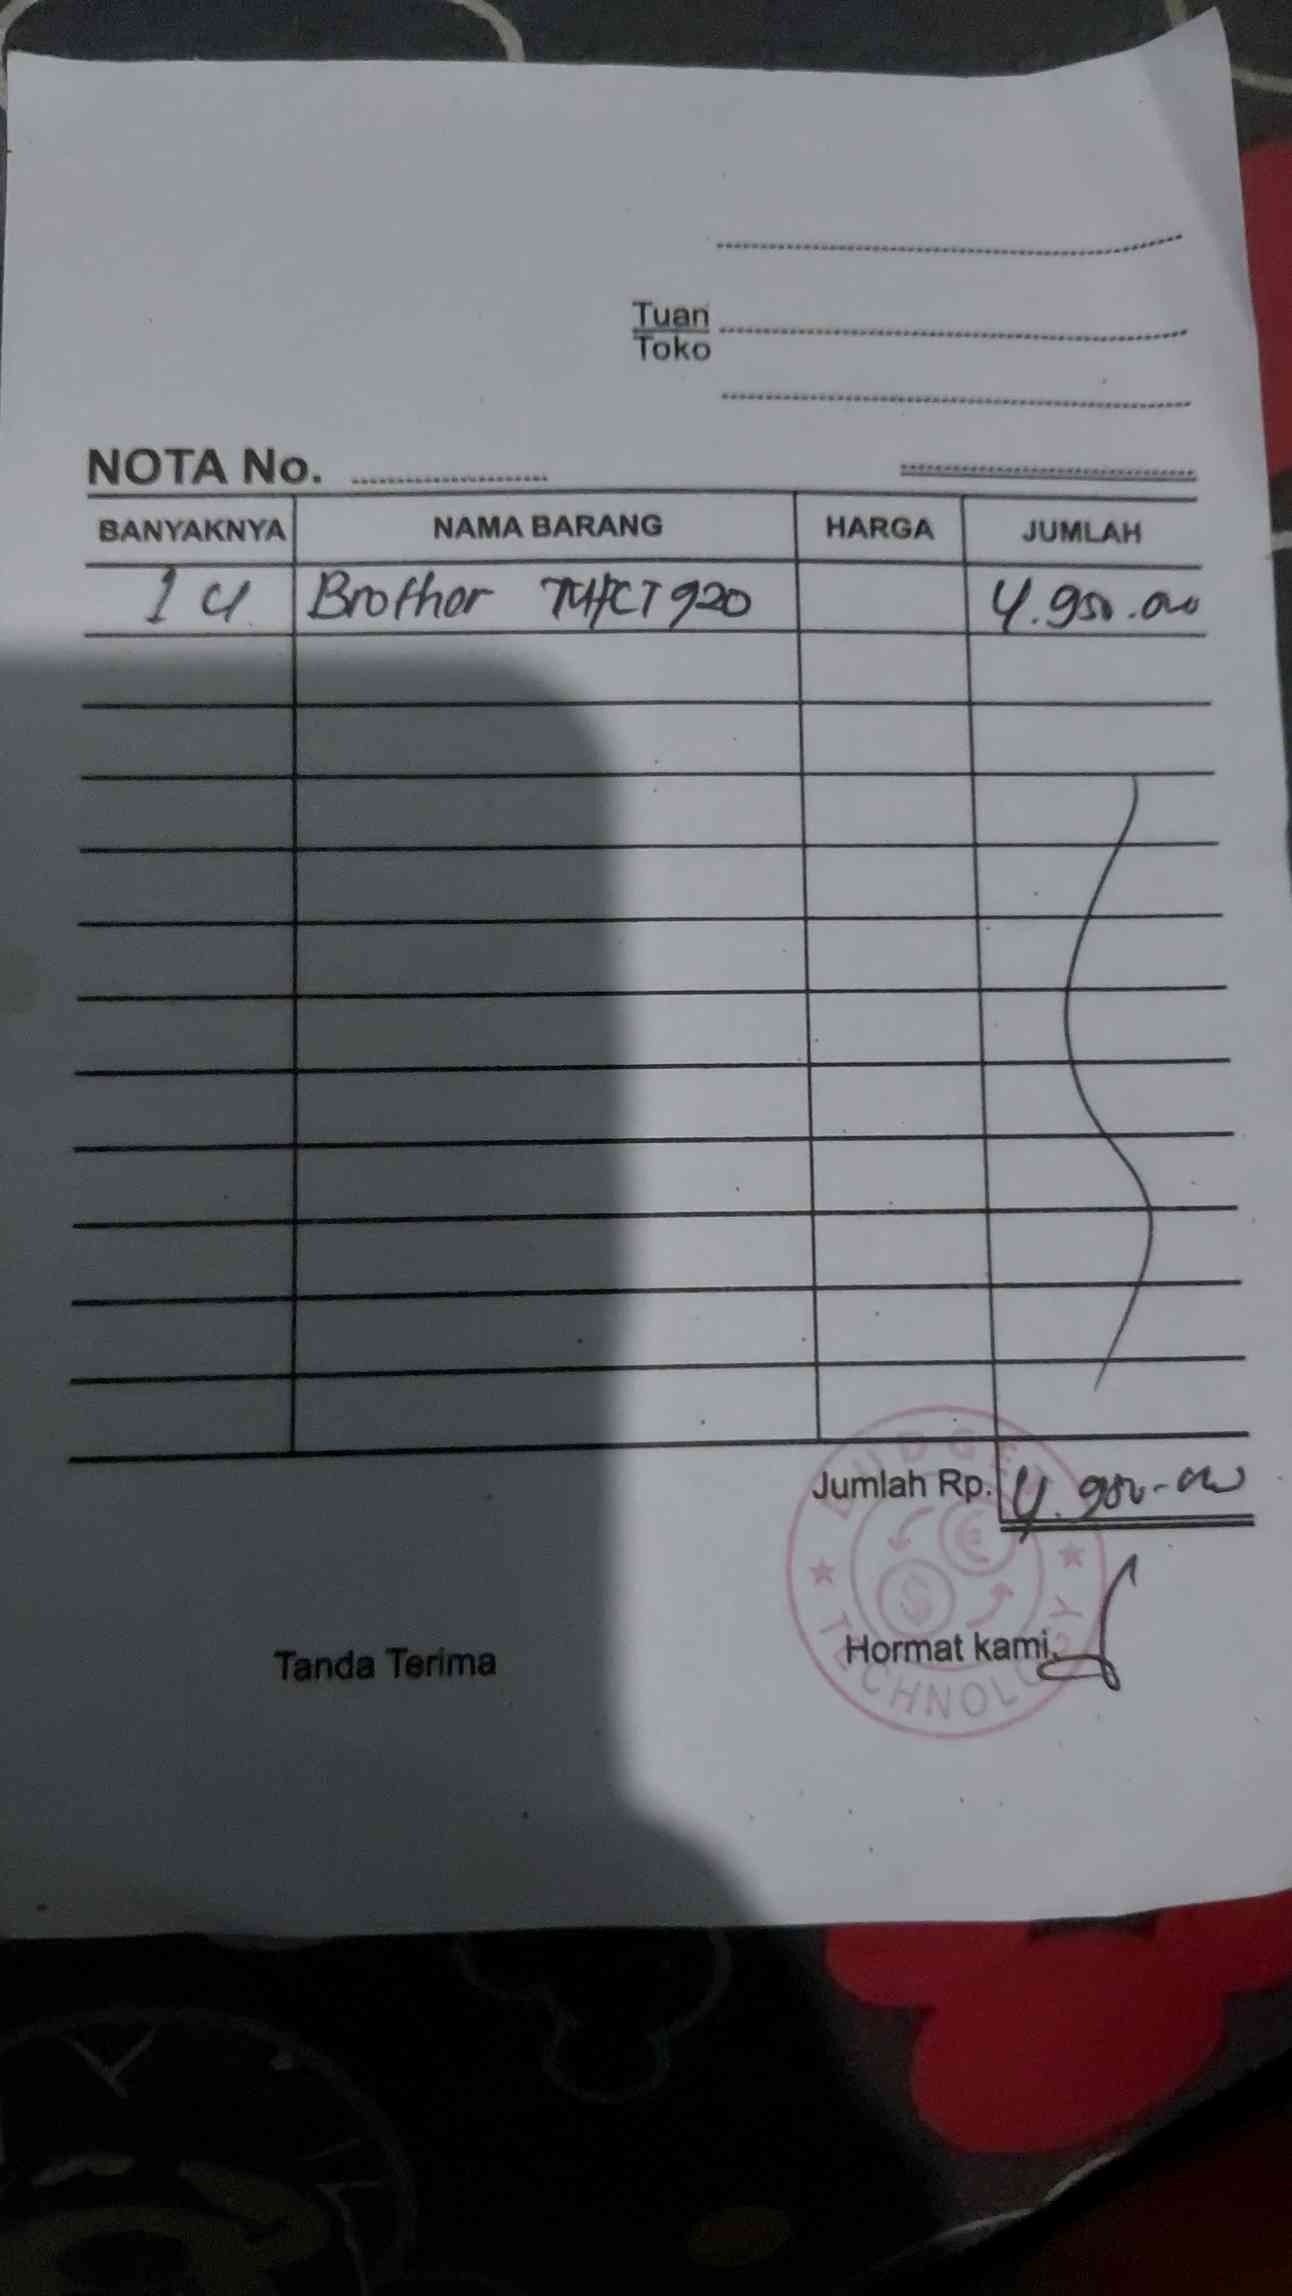 Tuan
Toko
NOTA No.
BANYAKNYA NAMA BARANG HARGA JUMLAH
1 u Brother 920 4.950.000
Jumlah Rp. 4.950.000
Tanda Terima Hormat kami,
BUDGET TECHNOLOGY